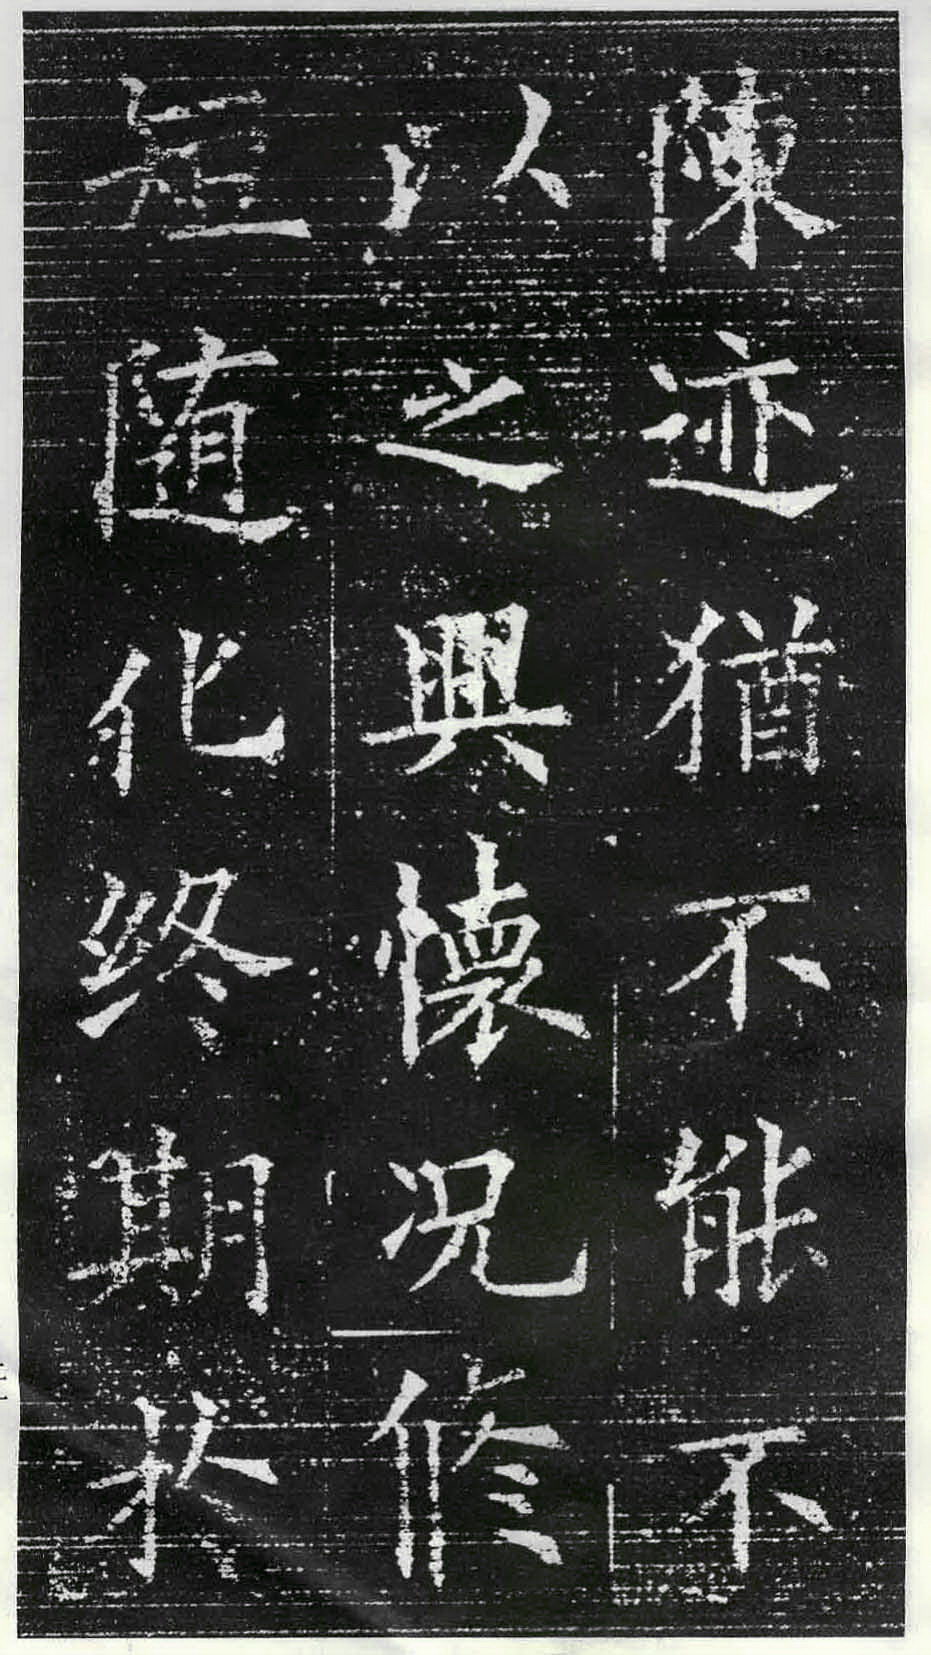 陳迹猶不能不
以之興懷况脩
短随化終期於